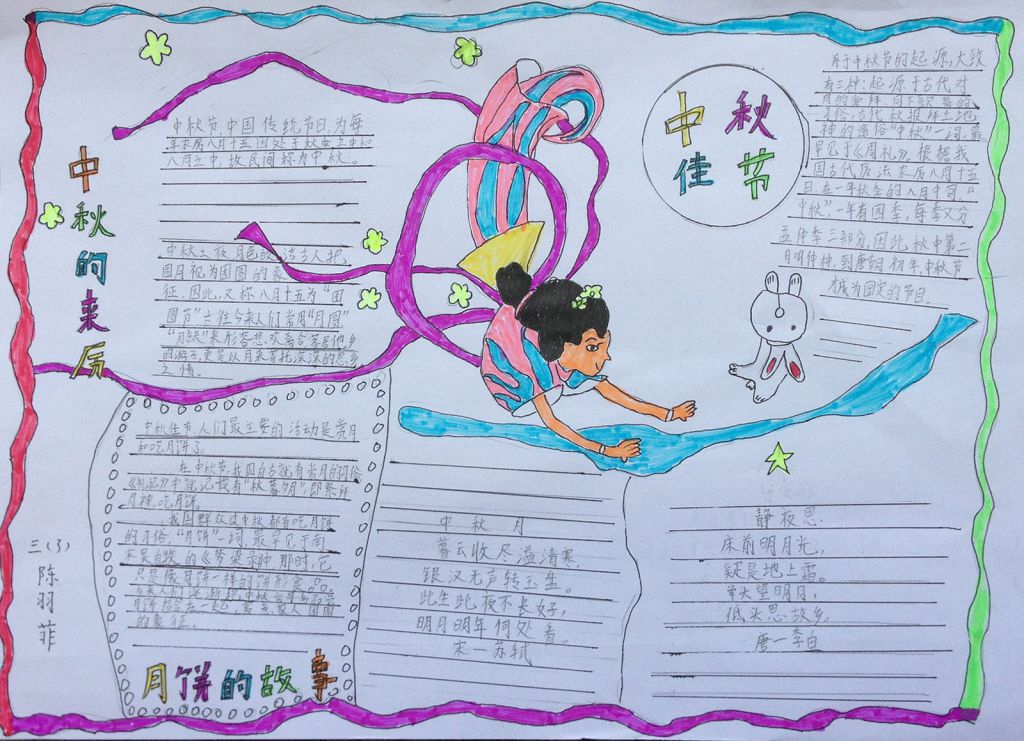 中秋的来历
中秋节,中国传统节日,为每
年农历八月十五,因处于秋季之中和
八月之中,故民间称为中秋。
中秋之夜,月色皎洁,古人把
圆月视为团圆的象
征,因此,又称八月十五为“团
圆节”。古往今来,人们常用“月圆”
“月缺”来形容悲欢离合,客居他乡
的游子,更是以月来寄托深深的思乡
之情。
中秋
佳节
关于中秋节的起源,大致
有三种:起源于古代对
月的崇拜、月下歌舞的
习俗,古代秋报拜土地
神的遗俗“中秋”一词,最
早见于《周礼》。根据我
国古代历法,农历八月十五
日,在一年秋季的八月中间,“
中秋”,一年有四季,每季又分
孟仲季三部分,因此,秋中第二
月叫仲秋,到唐朝初年,中秋节
才成为固定的节日。
中秋佳节,人们最主要的活动是赏月
和吃月饼了。
在中秋节,我国自古就有赏月的习俗
《礼记》中就记载有“秋暮夕月”,即祭拜
月神,吃月饼。
我国群众过中秋都有吃月饼
的习俗,“月饼”一词,最早见于南
宋吴自牧的《梦粱录》中,那时,它
只是像月饼一样的饼形食品。
后来人们逐渐把中秋赏月与品尝
月饼结合在一起,寓意家人团圆
的象征。
月饼的故事
三(3)
陈羽菲
中秋月
暮云收尽溢清寒,
银汉无声转玉盘。
此生此夜不长好,
明月明年何处看。
宋一苏轼
静夜思
床前明月光,
疑是地上霜。
举头望明月,
低头思故乡。
唐一李白